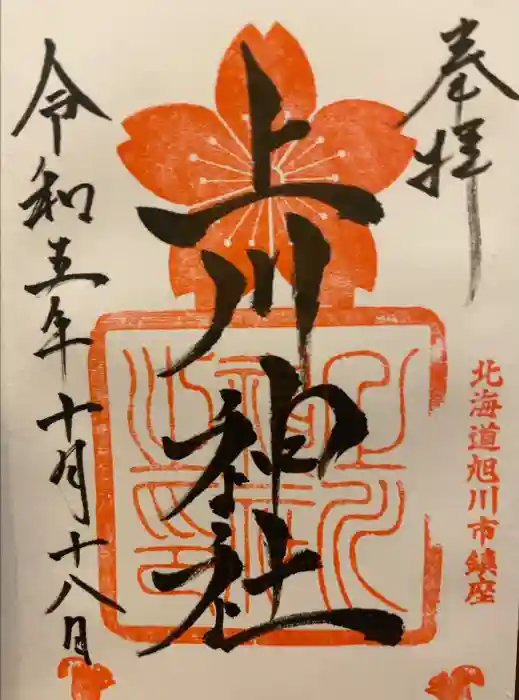 奉拝
北海道旭川市鎮座
上川神社
令和五年十月十八日